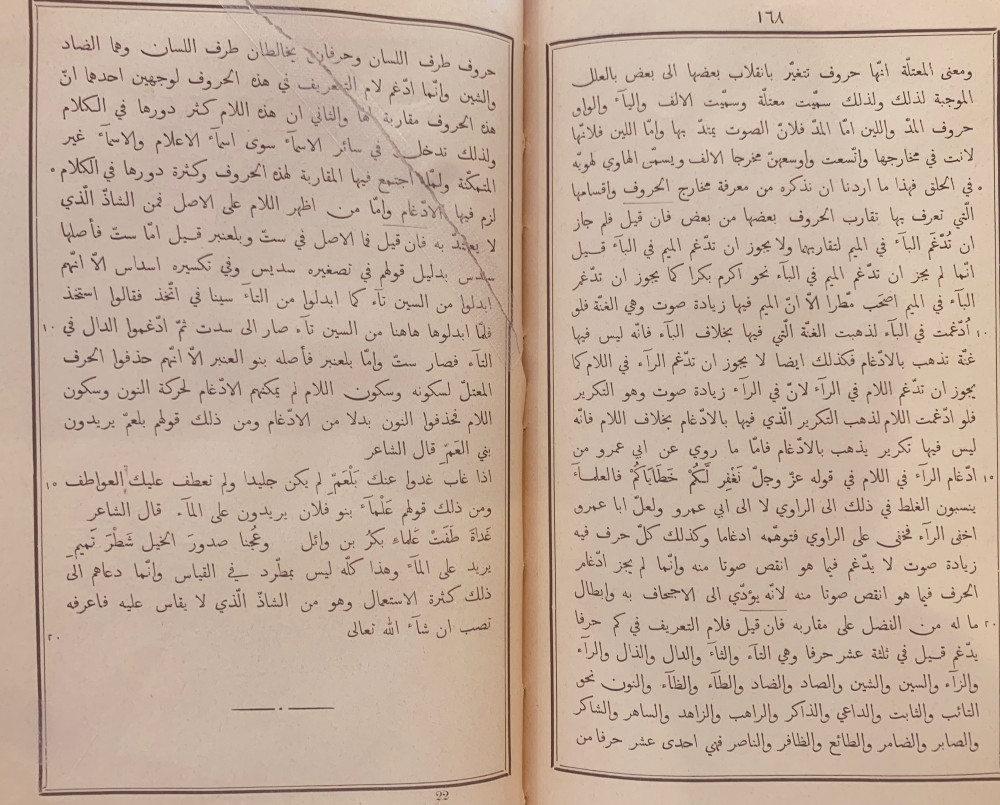 ١٦٨
ومعنى المعتلّة انّها حروف تتغيّر بانقلاب بعضها الى بعض بالعلل
الموجبة لذلك ولذلك سمّيت معتلّة وسمّيت الالف واليآء والواو
حروف المدّ واللين امّا المدّ فلانّ الصوت يمتدّ بها وامّا اللين فلانّها
لانت في مخارجها واتّسعت واوسعهنّ مخرجا الالف ويسمّى الهاوي لهويّه
٥ في الحلق فهذا ما اردنا ان نذكره من معرفة مخارج الحروف واقسامها
الّتي تعرف بها تقارب الحروف بعضها من بعض فان قيل فلم جاز
ان تُدّغَم البآء في الميم لتقاربهما ولا يجوز ان تدّغم الميم في البآء قيل
انّما لم يجز ان تدّغم الميم في البآء نحو اكرم بكرا كما يجوز ان تدّغم
البآء في الميم اصحَب مّطرا الّا انّ الميم فيها زيادة صوت وهي الغنّة فلو
١٠ اُدّغمت في البآء لذهبت الغنّة الّتي فيها بخلاف البآء فانّه ليس فيها
غنّة تذهب بالادّغام فكذلك ايضا لا يجوز ان تدّغم الرآء في اللام كما
يجوز ان تدّغم اللام في الرآء لانّ في الرآء زيادة صوت وهو التكرير
فلو ادّغمت اللام لذهب التكرير الّذي فيها بالادّغام بخلاف اللام فانّه
ليس فيها تكرير يذهب بالادّغام فامّا ما روي عن ابي عمرو من
١٥ ادّغام الرآء في اللام في قوله عزّ وجلّ نَغْفِر لَّكُمْ خَطَايَاكُمْ فالعلمآء
ينسبون الغلط في ذلك الى الراوي لا الى ابي عمرو ولعلّ ابا عمرو
اخفى الرآء فخفى على الراوي فتوهّمه ادغاما وكذلك كلّ حرف فيه
زيادة صوت لا يدّغم فيما هو انقص صوتا منه وانّما لم يجز ادّغام
الحرف فيما هو انقص صوتا منه لانّه يؤدّي الى الاجحاف به وابطال
٢٠ ما له من الفضل على مقاربه فان قيل فلام التعريف في كم حرفا
يدّغم قيل في ثلثة عشر حرفا وهي التآء والثآء والدال والذال والرآء
والزآء والسين والشين والصاد والضاد والطآء والظآء والنون نحو
التائب والثابت والداعي والذاكر والراهب والزاهد والساهر والشاكر
والصابر والضامر والطائع والظافر والناصر فهي احدى عشر حرفا من
حروف طرف اللسان وحرفان يخالطان طرف اللسان وهما الضاد
والشين وانّما ادّغم لام التعريف في هذه الحروف لوجهين احدهما انّ
هذه الحروف مقاربة لها والثاني ان هذه اللام كثر دورها في الكلام
ولذلك تدخل في سائر الاسمآء سوى اسمآء الاعلام والاسمآء غير
المتمكّنة ولمّا اجتمع فيها المقاربة لهذه الحروف وكثرة دورها في الكلام ٥
لزم فيها الادّغام وامّا من اظهر اللام على الاصل فمن الشاذّ الّذي
لا يعتدّ به فان قيل فما الاصل في ستّ وبلعنبر قيل امّا ستّ فأصلها
سدس بدليل قولهم في تصغيره سديس وفي تكسيره اسداس الّا انّهم
ابدلوا من السين تآء كما ابدلوا من التآء سينا في اتّخذ فقالوا استخذ
فلمّا ابدلوها هاهنا من السين تآء صار الى سدت ثمّ ادّغموا الدال في ١٠
التآء فصار ستّ وامّا بلعنبر فأصله بنو العنبر الّا انّهم حذفوا الحرف
المعتلّ لسكونه وسكون اللام لم يمكنهم الادّغام لحركة النون وسكون
اللام فحذفوا النون بدلا من الادّغام ومن ذلك قولهم بلعمّ يريدون
بني العَمّ قال الشاعر
اذا غاب غدوا عنك بَلْعَمّ لم يكن جليدا ولم تعطف عليك العواطف ١٥
ومن ذلك قولهم عَلْمآء بنو فلان يريدون على المآء. قال الشاعر
غَداةَ طَفَتْ عَلْماءِ بكرُ بن وائل وعُجْنا صدورَ الخيل شَطْرَ تَميم
يريد على المآء وهذا كلّه ليس بمطّرد في القياس وانّما دعاهم الى
ذلك كثرة الاستعمال وهو من الشاذّ الّذي لا يقاس عليه فاعرفه
تصب ان شآء الله تعالى ٢٠
22